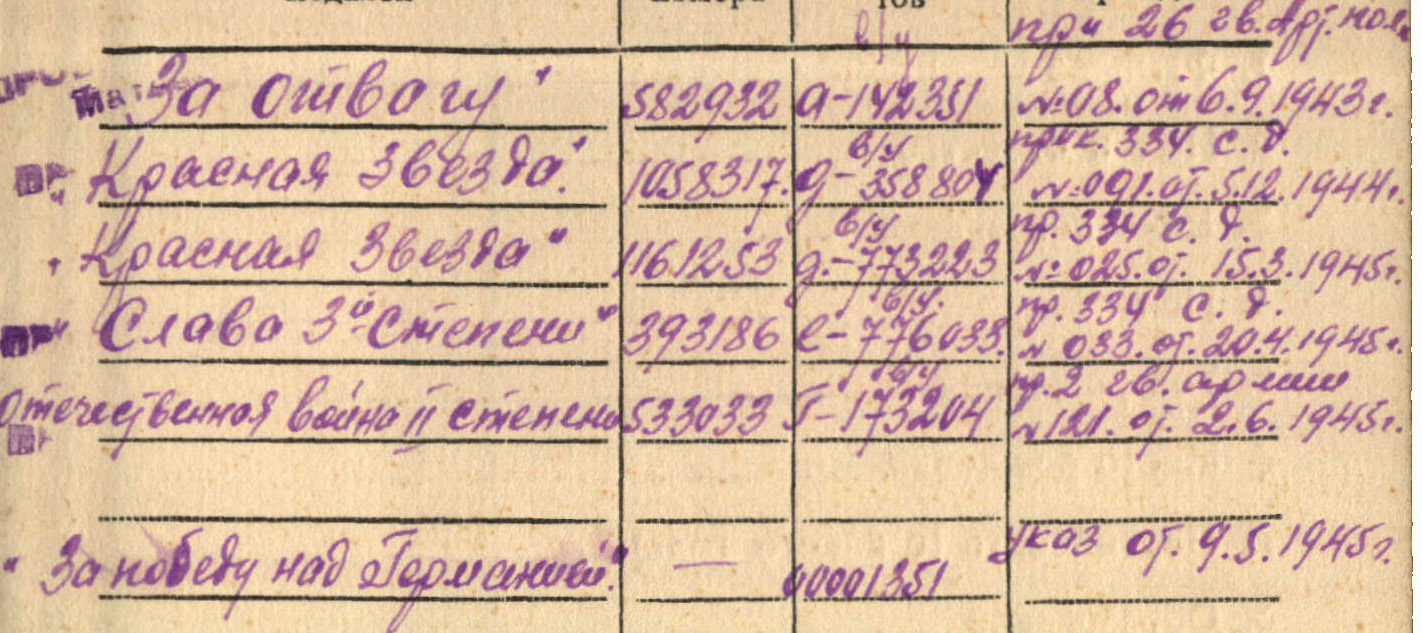 в/у при 26 гв. Арт. пол.
За отвагу" 582932 а-142351 №08. от 6.9.1943г.
в/у прик. 334. с. д.
" Красная Звезда". 1058317. д-358804 №091. от. 5.12.1944г.
в/у пр. 334 с. д.
" Красная Звезда" 1161253 д.-773223 №025. от. 15.3.1945г.
в/у. пр. 334 с. д.
" Слава 3й Степени" 393186 е-776033. № 033. от. 20.4.1945г.
в/у пр. 2 гв. армии
Отечественная война II степени 533033 Г-173204 №121. от. 2.6.1945г.
указ от. 9.5.1945г.
" За победу над Германией." — 00001351